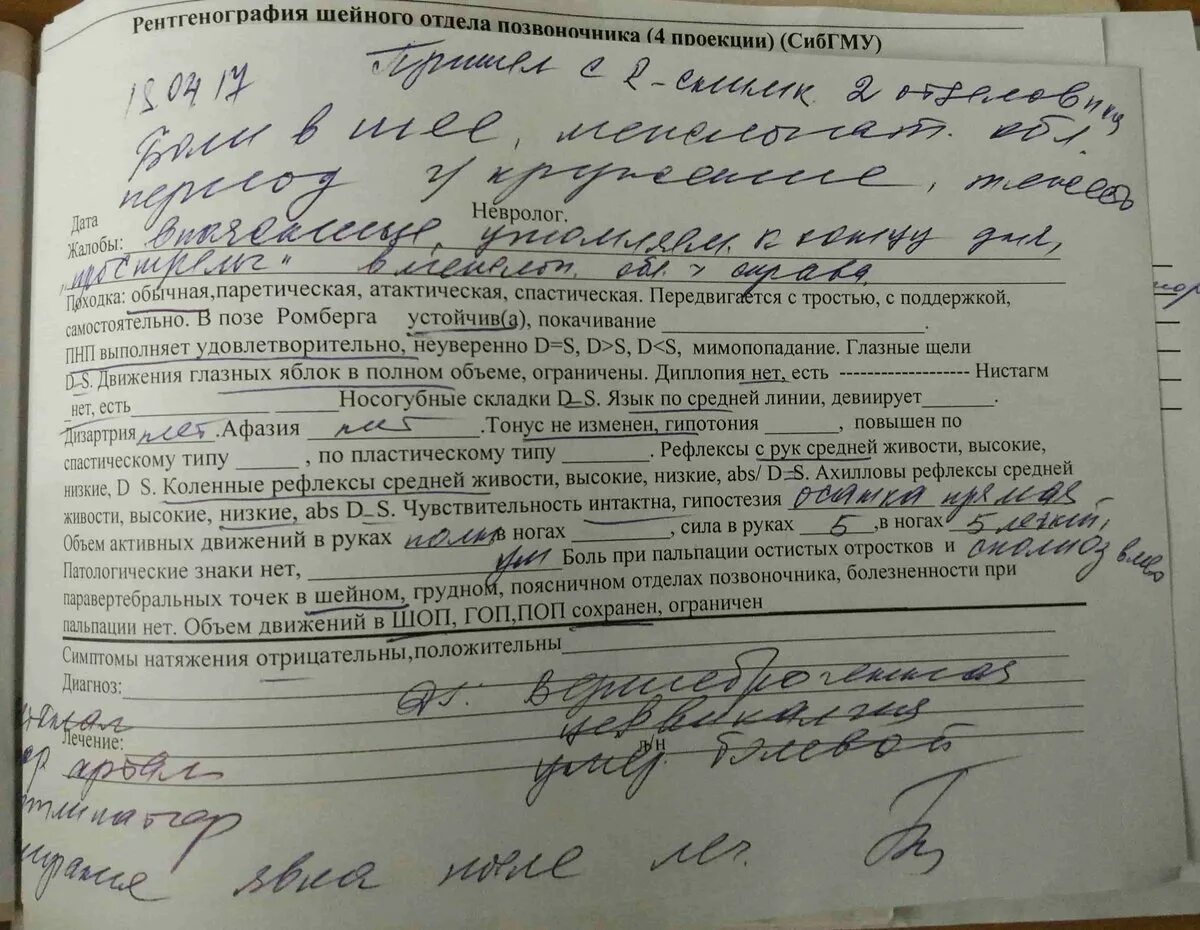 Рентгенография шейного отдела позвоночника (4 проекции) (СибГМУ)
18.04.17 Пришел с R-снимк. 2 отделов п-ка
Боли в шее, межлопат. обл.
период г/кружение, тяжесть
Дата Невролог.
Жалобы: в пояснице, утомляем. к концу дня,
„прострелы" в межлоп. обл. > справа,
Походка: обычная,паретическая, атактическая, спастическая. Передвигается с тростью, с поддержкой,
самостоятельно. В позе Ромберга устойчив(а), покачивание
ПНП выполняет удовлетворительно, неуверенно D=S, D>S, D<S, мимопопадание. Глазные щели
D=S. Движения глазных яблок в полном объеме, ограничены. Диплопия нет, есть ------------------- Нистагм
нет, есть Носогубные складки D=S. Язык по средней линии, девиирует
Дизартрия нет. Афазия нет .Тонус не изменен, гипотония , повышен по
спастическому типу , по пластическому типу . Рефлексы с рук средней живости, высокие,
низкие, D S. Коленные рефлексы средней живости, высокие, низкие, abs/ D=S. Ахилловы рефлексы средней
живости, высокие, низкие, abs D=S. Чувствительность интактна, гипостезия осанка прямая
Объем активных движений в руках полн в ногах , сила в руках 5 ,в ногах 5 легкий,
Патологические знаки нет, ум Боль при пальпации остистых отростков и сколиоз влево
паравертебральных точек в шейном, грудном, поясничном отделах позвоночника, болезненности при
пальпации нет. Объем движений в ШОП, ГОП,ПОП сохранен, ограничен
Симптомы натяжения отрицательны,положительны
Диагноз: Ds. Вертеброгенная
цервикалгия
Лечение: п/н
умер. болевой
явка после леч.